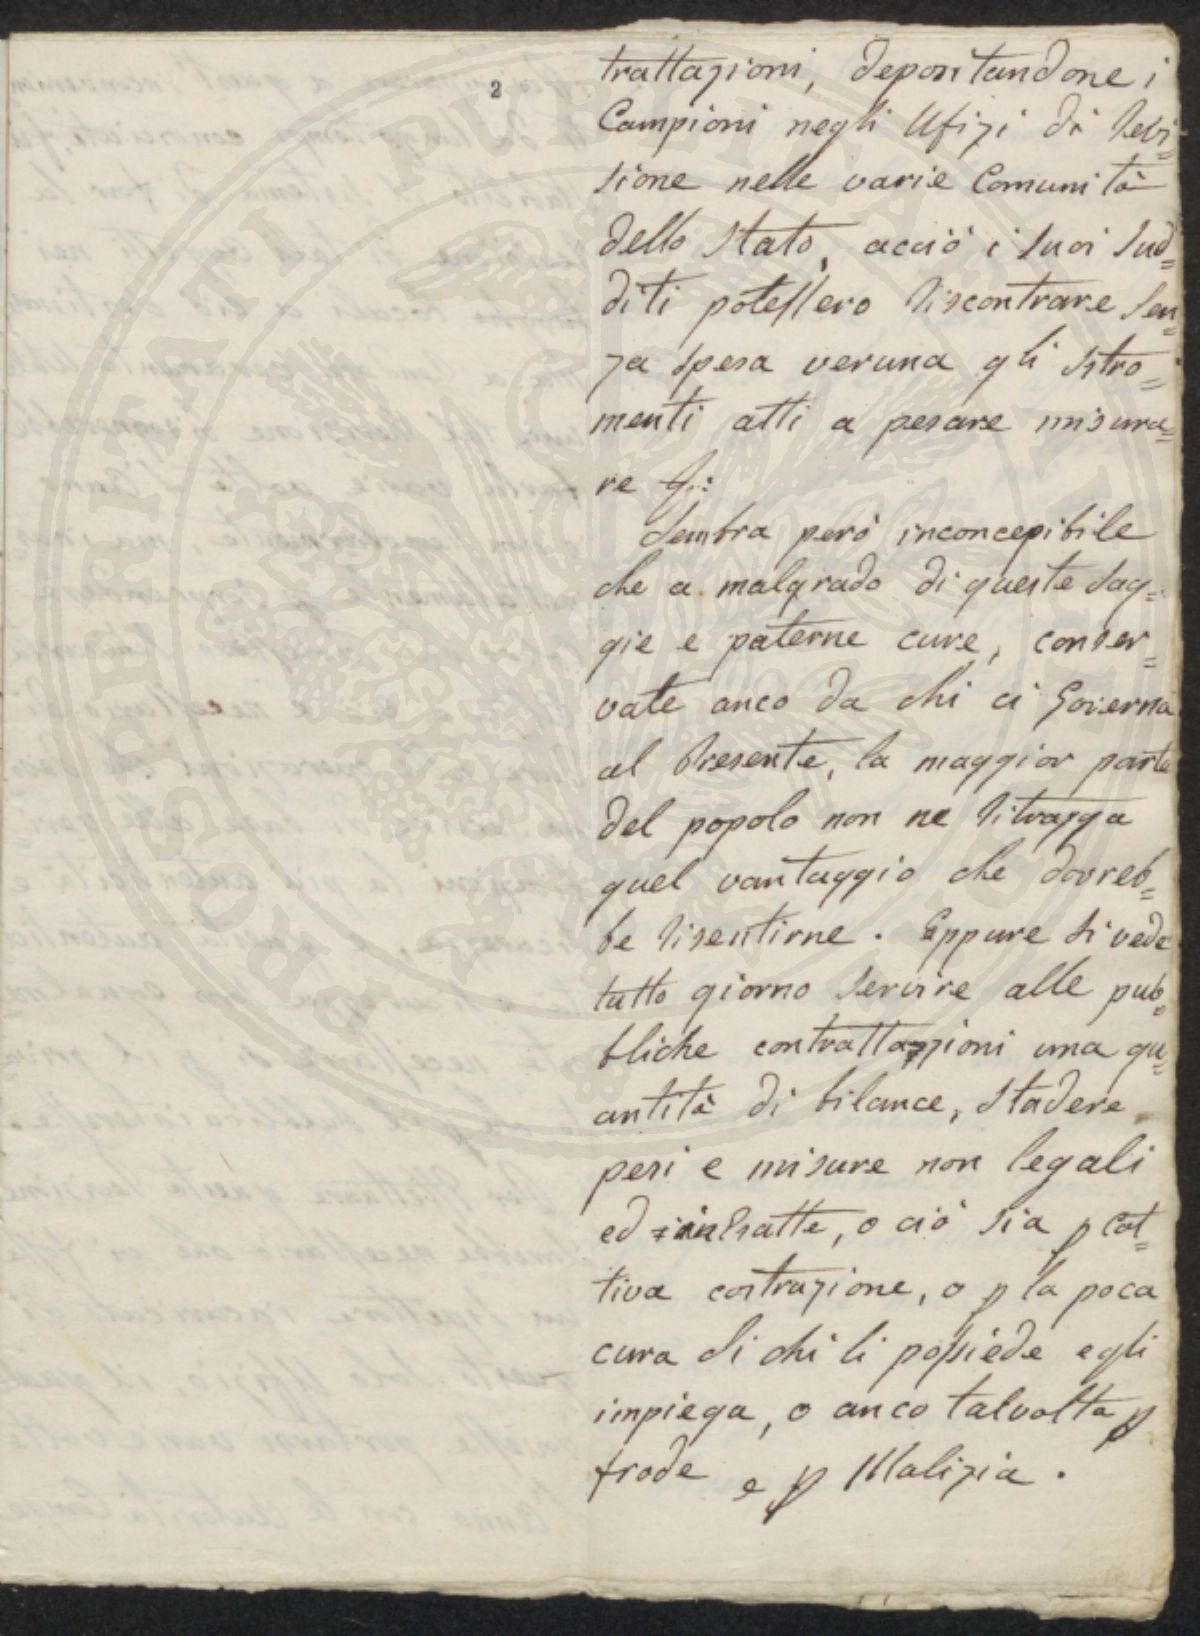 2
trattazioni, depositandone i
Campioni negli Ufizi di Revi=
sione nelle varie Comunità
dello Stato, acciò i suoi Sud=
diti potessero riscontrare sen=
za spesa veruna gli Stro=
menti atti a pesare misura=
re &:
Sembra però inconcepibile
che a malgrado di queste sag=
gie e paterne cure, conser=
vate anco da chi ci Governa
al Presente, la maggior parte
del popolo non ne ritragga
quel vantaggio che dovreb=
be risentirne. Eppure si vede
tutto giorno servire alle pub=
bliche contrattazzioni una qu=
antità di bilance, Stadere
pesi e misure non legali
ed inesatte, o ciò sia p cat=
tiva costruzione, o p la poca
cura di chi li possiede e gli
impiega, o anco talvolta p
frode e p Malizia.
PROSPERITATI PUBLICAE